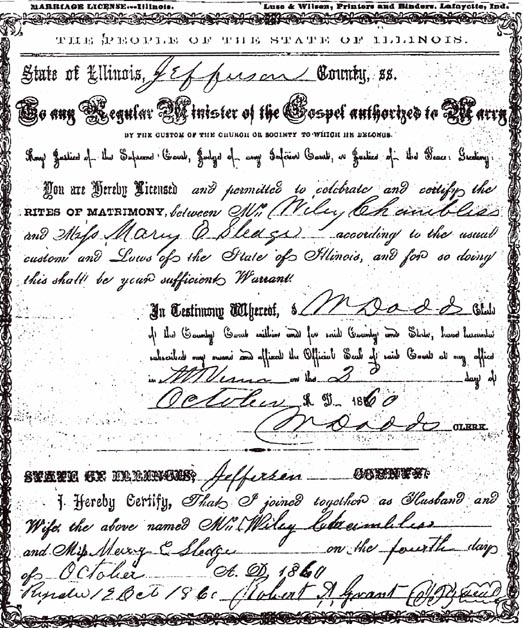 MARRIAGE LICENSE---Illinois. Luse & Wilson, Printers and Binders, Lafayette, Ind.
THE PEOPLE OF THE STATE OF ILLINOIS.
State of Illinois, Jefferson County, ss.
To any Regular Minister of the Gospel authorized to Marry
BY THE CUSTOM OF THE CHURCH OR SOCIETY TO WHICH HE BELONGS.
Any Justice of the Supreme Court, Judge of any Inferior Court, or Justice of the Peace: Greeting:
You are Hereby Licensed and permitted to celebrate and certify the
RITES OF MATRIMONY, between Mr. Wiley Chambliss
and Miss Mary E Sledge according to the usual
custom and Laws of the State of Illinois, and for so doing
this shall be your sufficient Warrant.
In Testimony Whereof, I W Dodds Clerk
of the County Court within and for said County and State, have hereunto
subscribed my name and affixed the Official Seal of said Court at my office
in Mt Vernon on the 2d day of
October A. D. 1860
W Dodds CLERK.
STATE OF ILLINOIS, Jefferson COUNTY.
I Hereby Certify, That I joined together as Husband and
Wife, the above named Mr. Wiley Chambliss
and Miss Mary E Sledge on the fourth day
of October A. D. 1860
12 Oct 186 Robert A Grant